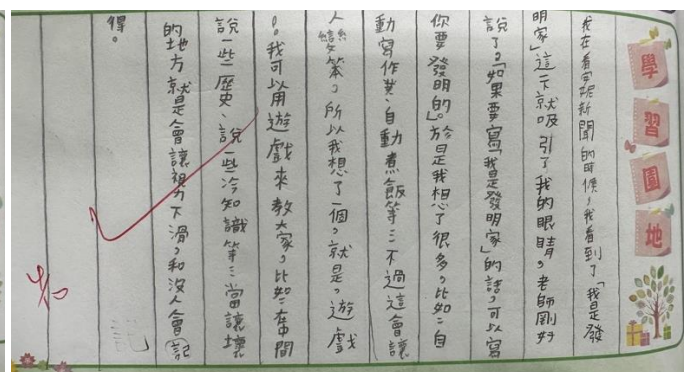 學習園地
我在看字呢新聞的時候，我看到了「我是發
明家」這一下就吸引了我的眼睛。老師剛好
說了：「如果要寫「我是發明家」的話，可以寫
你要發明的。」於是我想了很多，比如：自
動寫作業、自動煮飯等…不過這會讓
人變笨，所以我想了一個，就是，遊戲
！我可以用遊戲來教大家，比如：在中間
說一些歷史、說一些冷知識等…當讓壞
的地方就是會讓視力下滑，和沒人會記
得。